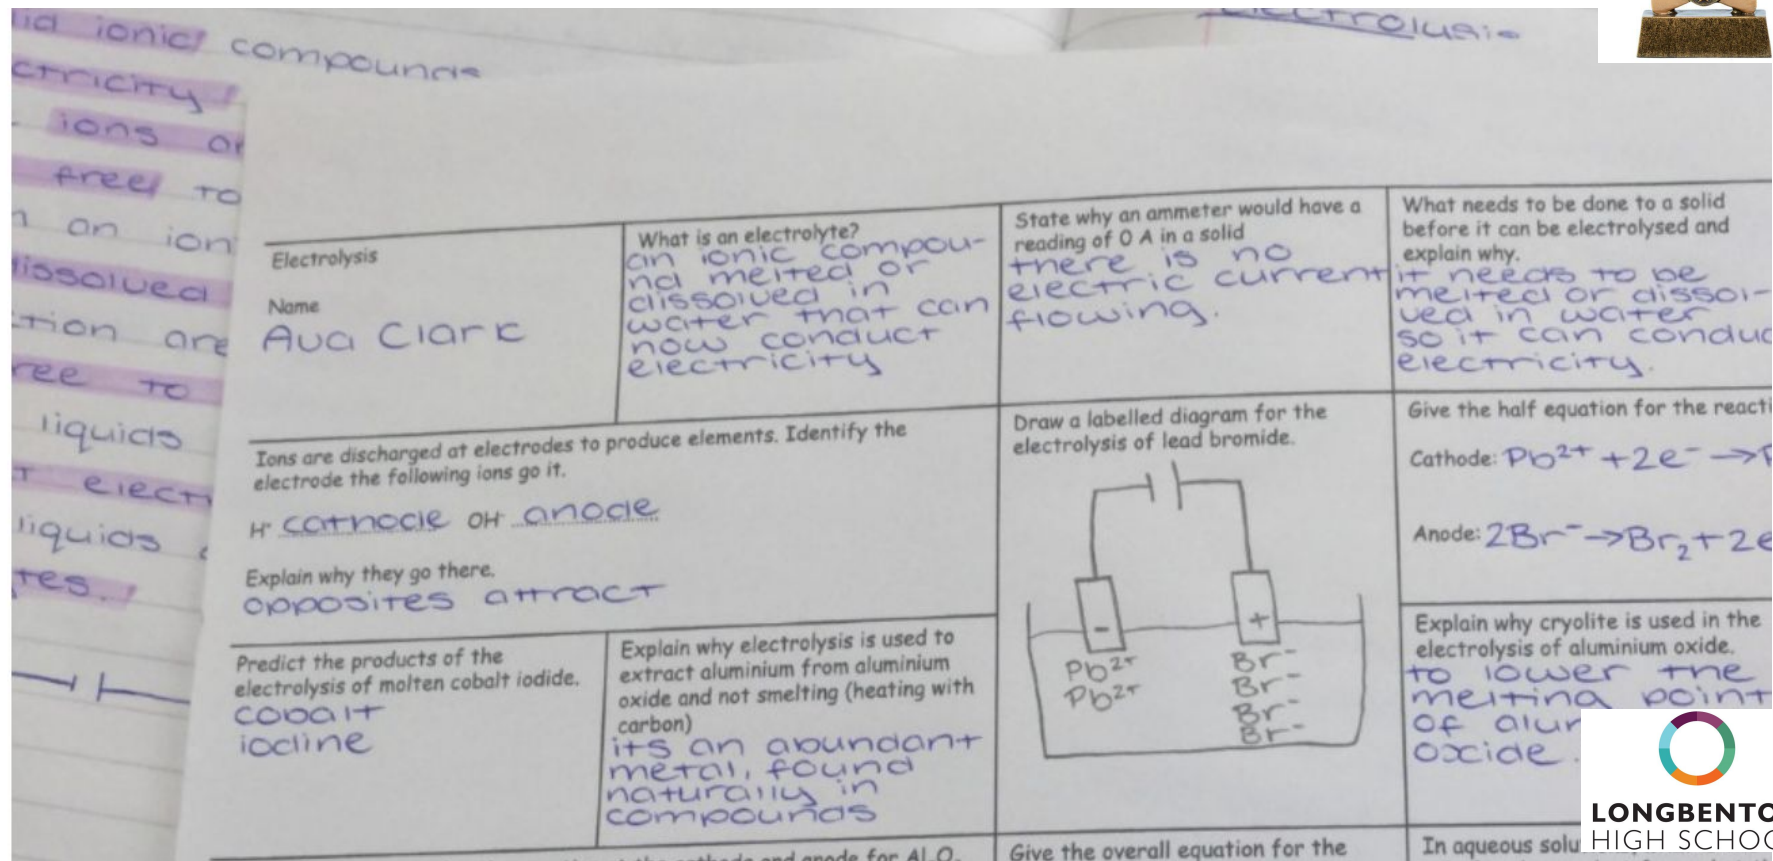 lid ionic compounds
ctricity
ions or
free to
n an ion
dissolved
tion are
ree to
liquids
T electr
liquids
tes.
Electrolysis
Name
Ava Clark
What is an electrolyte?
an ionic compou-
nd melted or
dissolved in
water that can
now conduct
electricity
State why an ammeter would have a
reading of 0 A in a solid
there is no
electric current
flowing.
What needs to be done to a solid
before it can be electrolysed and
explain why.
it needs to be
melted or dissol-
ved in water
so it can conduc
electricity.
Ions are discharged at electrodes to produce elements. Identify the
electrode the following ions go it.
H⁺ cathode OH⁻ anode
Explain why they go there.
opposites attract
Draw a labelled diagram for the
electrolysis of lead bromide.
- +
Pb²⁺ Br⁻
Pb²⁺ Br⁻
Br⁻
Br⁻
Give the half equation for the reacti
Cathode: Pb²⁺ + 2e⁻ → P
Anode: 2Br⁻ → Br₂ + 2e
Predict the products of the
electrolysis of molten cobalt iodide.
cobalt
iodine
Explain why electrolysis is used to
extract aluminium from aluminium
oxide and not smelting (heating with
carbon)
its an abundant
metal, found
naturally in
compounds
Explain why cryolite is used in the
electrolysis of aluminium oxide.
to lower the
melting point
of alu
oxcide.
cathode and anode for Al₂O₃
Give the overall equation for the
In aqueous solu
LONGBENTO
HIGH SCHOO